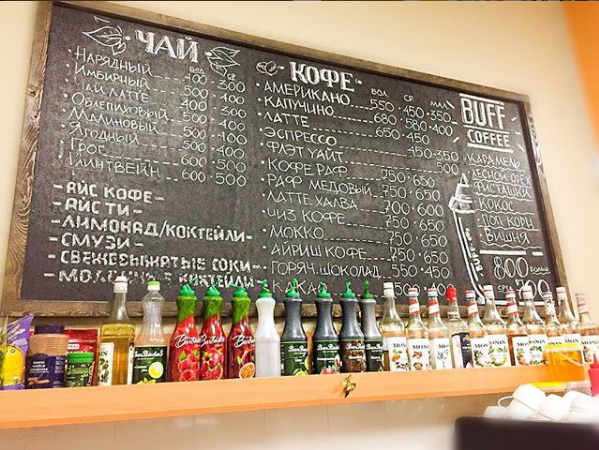 ЧАЙ
БОЛ. СР.
НАРЯДНЫЙ 400 300
ИМБИРНЫЙ 500 400
ЧАЙ ЛАТТЕ 500 400
ОБЛЕПИХОВЫЙ 500 400
МАЛИНОВЫЙ 500 400
ЯГОДНЫЙ 500 400
ГРОГ 600 500
ГЛИНТВЕЙН 600 500
- АЙС КОФЕ -
- АЙС ТИ -
- ЛИМОНАД/КОКТЕЙЛИ -
- СМУЗИ -
- СВЕЖЕВЫЖАТЫЕ СОКИ -
- МОЛОЧНЫЕ КОКТЕЙЛИ -
КОФЕ
БОЛ. СР. МАЛ.
АМЕРИКАНО 550 450 350
КАПУЧИНО 680 580 400
ЛАТТЕ 650 450
ЭСПРЕССО 350
ФЛЭТ УАЙТ 500
КОФЕ РАФ 750 650
РАФ МЕДОВЫЙ 750 650
ЛАТТЕ ХАЛВА 700 600
ЧИЗ КОФЕ 750 650
МОККО 750 650
АЙРИШ КОФЕ 750 650
ГОРЯЧ. ШОКОЛАД 550 450
КАКАО 550 400
BUFF
COFFEE
КАРАМЕЛЬ
ЛЕСНОЙ ОРЕХ
ФИСТАШКА
КОКОС
ПОПКОРН
ВИШНЯ
800
MONIN
MONIN
MONIN
MONIN
MONIN